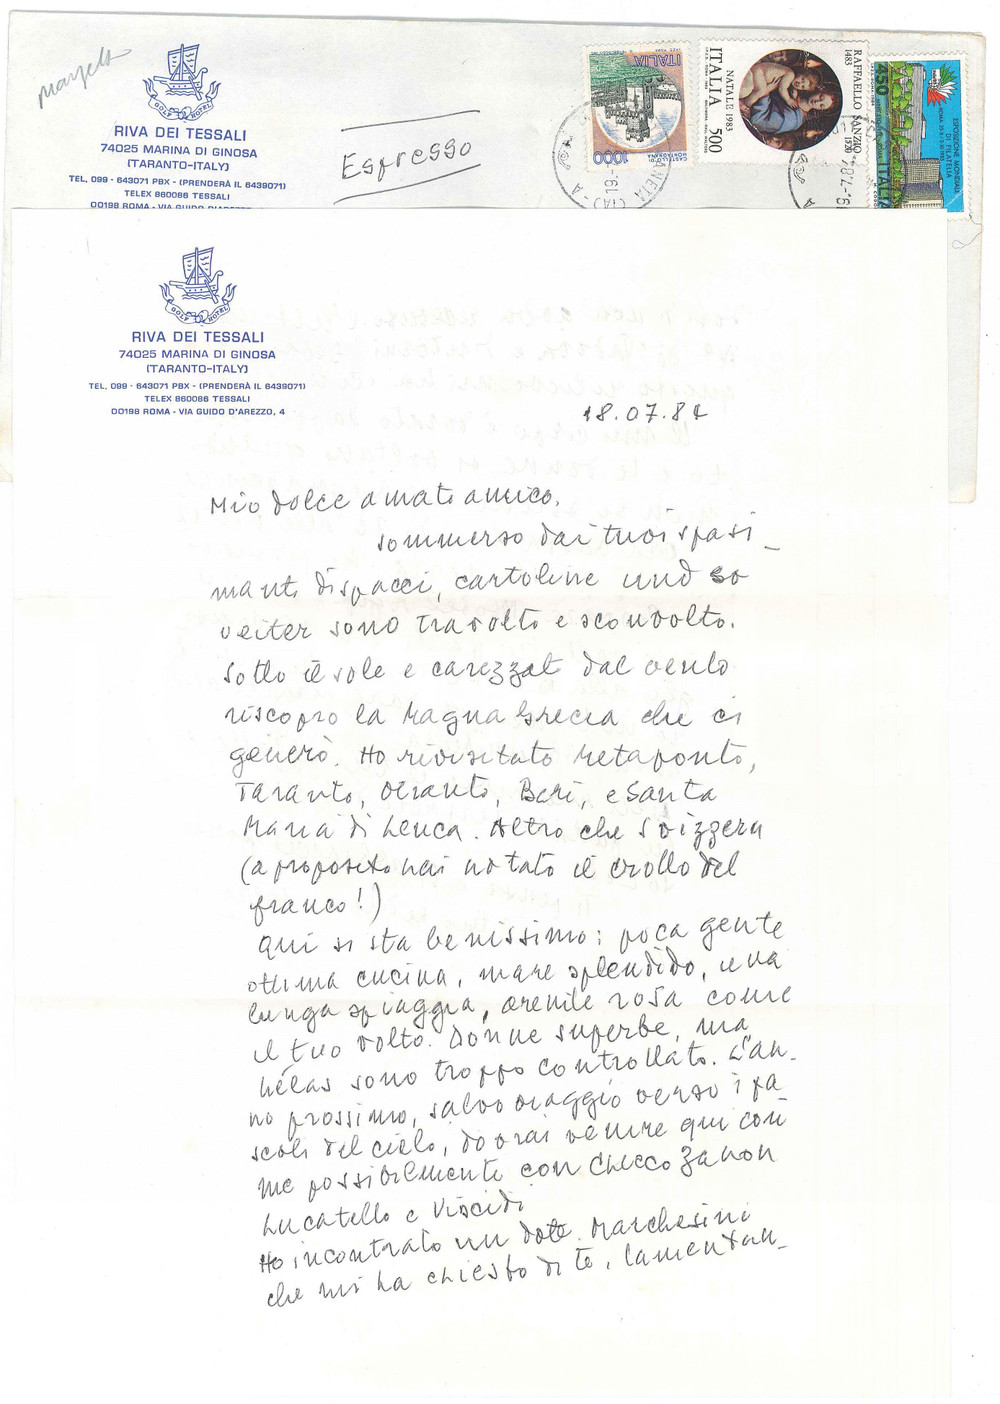 GOLF HOTEL
RIVA DEI TESSALI
74025 MARINA DI GINOSA
(TARANTO-ITALY)
TEL. 099 - 643071 PBX - (PRENDERÀ IL 6439071)
TELEX 860086 TESSALI
00198 ROMA - VIA GUIDO D'AREZZO, 4
Espresso
ITALIA
1000
CASTELLO DI MONTAGNANA
NATALE 1983
ITALIA 500
RAFFAELLO SANZIO
1483 1520
ESPOSIZIONE MONDIALE
DI FILATELIA
ITALIA
GOLF HOTEL
RIVA DEI TESSALI
74025 MARINA DI GINOSA
(TARANTO-ITALY)
TEL. 099 - 643071 PBX - (PRENDERÀ IL 6439071)
TELEX 860086 TESSALI
00198 ROMA - VIA GUIDO D'AREZZO, 4
18.07.84
Mio dolce amato amico,
sommerso dai tuoi spasi-
manti dispacci, cartoline und so
veiter sono travolto e sconvolto.
Sotto il sole e carezzat dal vento
riscopro la Magna Grecia che ci
generò. Ho rivisitato Metaponto,
Taranto, Otranto, Bari, e Santa
Maria di Leuca. Altro che Svizzera
(a proposito hai notato il crollo del
franco!)
Qui si sta benissimo: poca gente
ottima cucina, mare splendido, una
lunga spiaggia, arenile rosa come
il tuo volto. Donne superbe, ma
hélas sono troppo controllato. L'an-
no prossimo, salvo viaggio verso i pa-
scoli del cielo, dovrai venire qui con
me possibilmente con Checco Zanon
Lucatello e Viscidi
Ho incontrato un dott. Marchesini
che mi ha chiesto di te, lamentan-